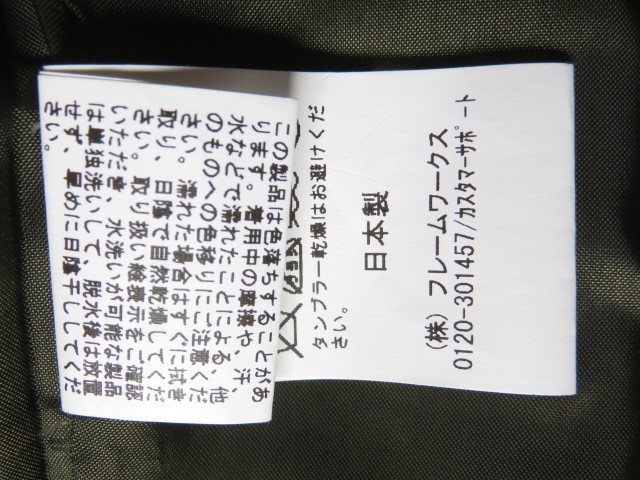 この製品は色落ちすることがあ
ります。着用中の摩擦や、汗、
水などで濡れたことによる、他
のものへの色移りにご注意くだ
さい。濡れた場合はすぐに拭き
取り、日陰で自然乾燥してくだ
さい。取り扱い絵表示をご確認
いただき、水洗いが可能な製品
は単独洗いして、脱水後は放置
せず、早めに日陰干ししてくだ
さい。
タンブラー乾燥はお避けくだ
さい。
日本製
(株) フレームワークス
0120-301457/カスタマーサポート